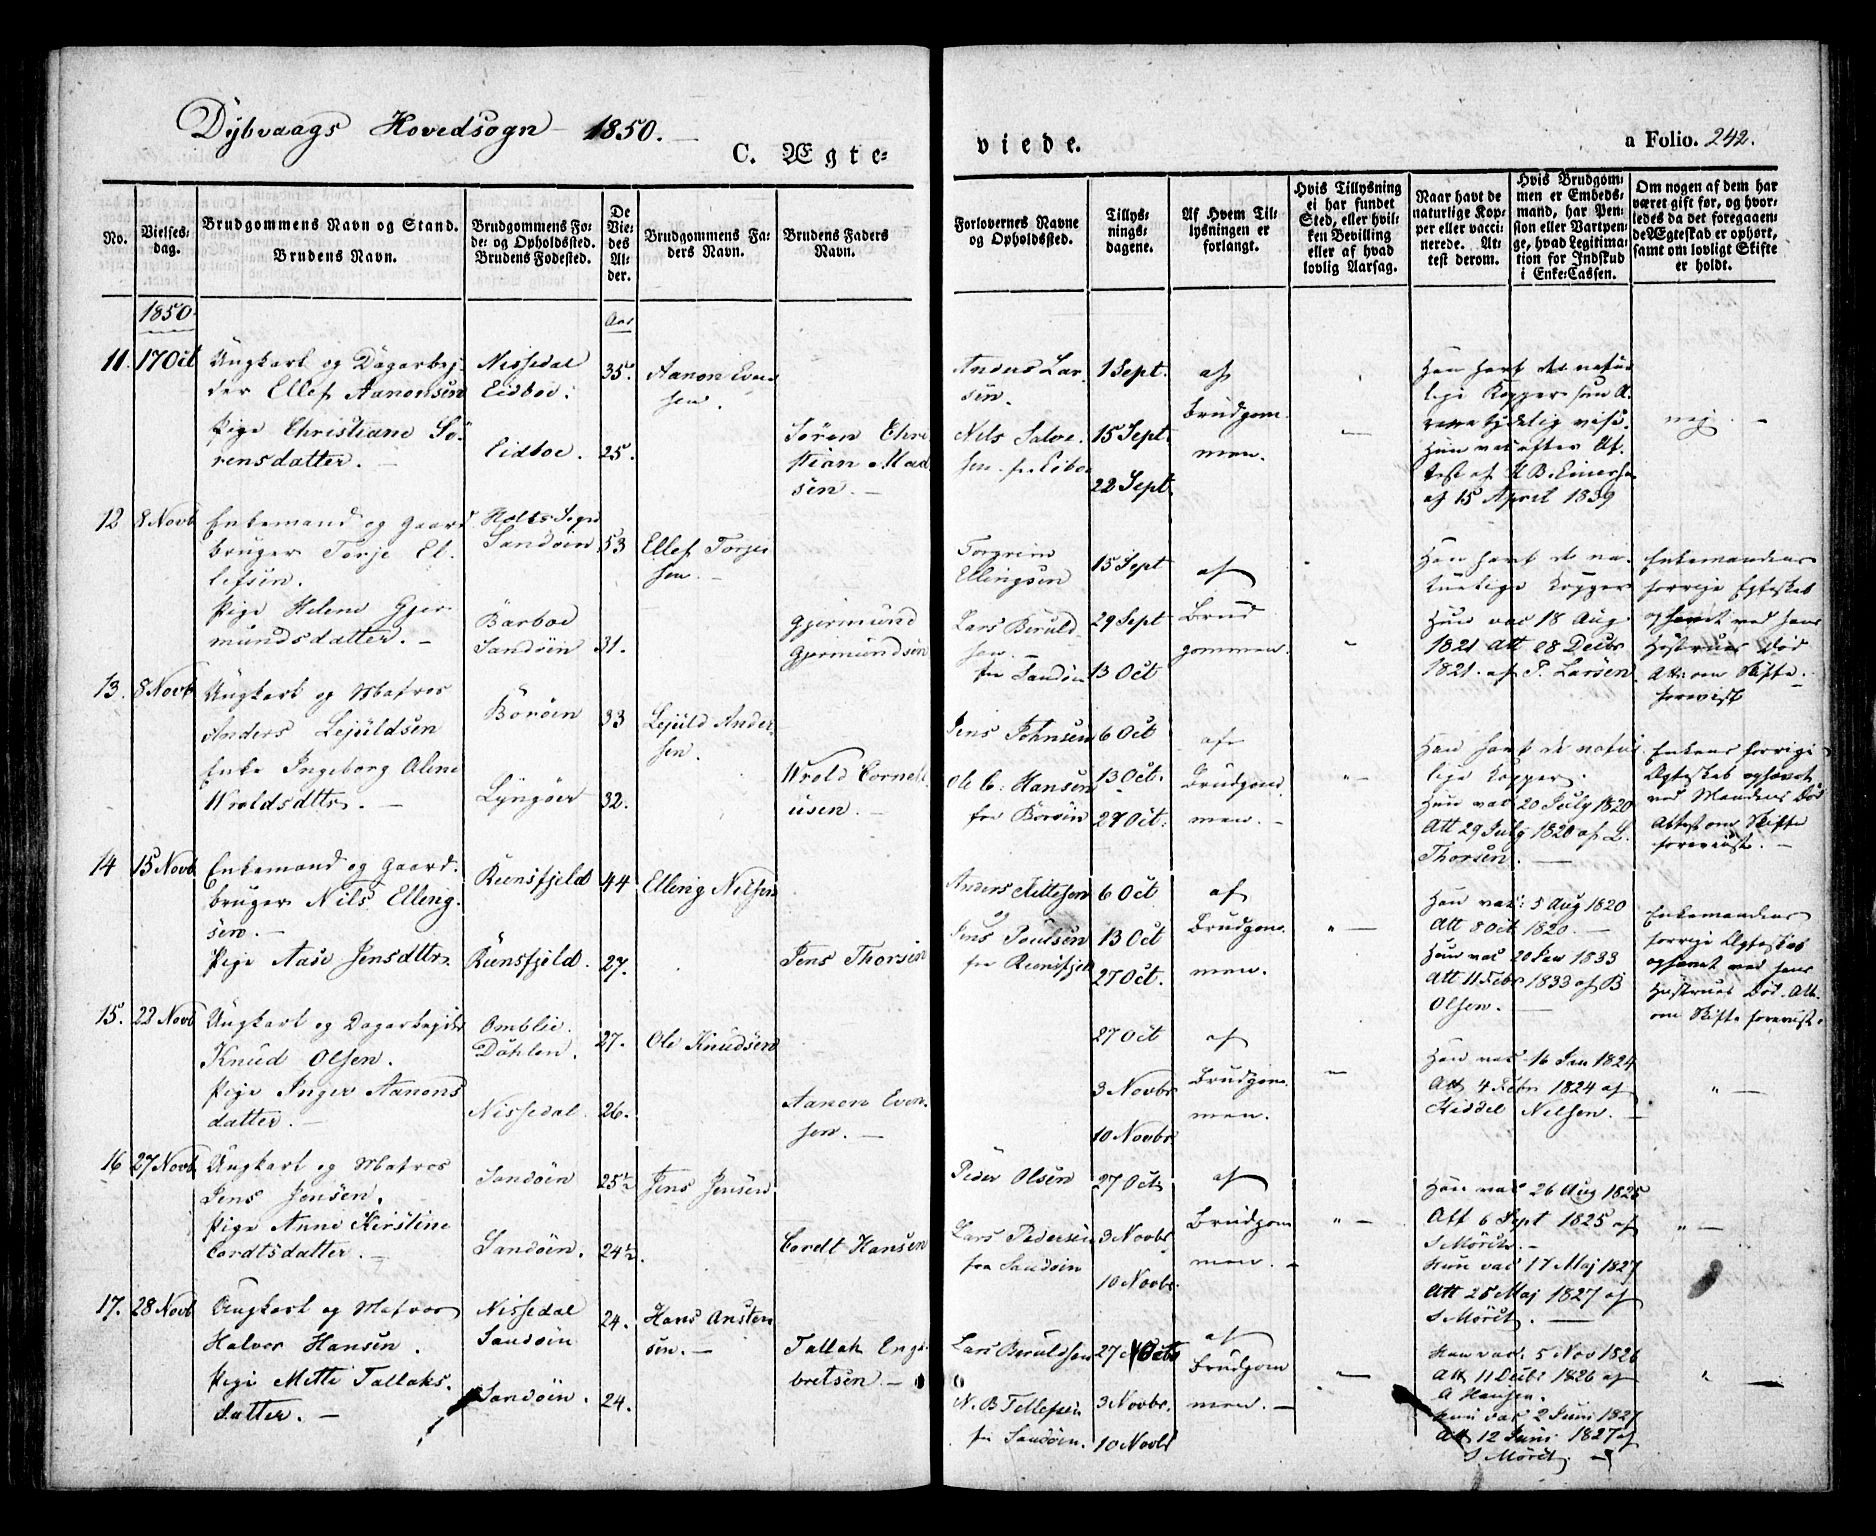 Dybvaags Hovedsogn 1850.
C. Ægte-
viede.
a Folio. 242.
No.
Vielses-
dag.
Brudgommens Navn og Stand.
Brudens Navn.
Brudgommens Fø-
de- og Opholdssted.
Brudens Fødested.
De
Vie-
des
Al-
der.
Brudgommens Fa-
ders Navn.
Brudens Faders
Navn.
Forlovernes Navne
og Opholdssted.
Tillys-
nings-
dagene.
Af Hvem Til-
lysningen er
forlangt.
Hvis Tillysning
ei har fundet
Sted, eller hvil-
ken Bevilling
eller af hvad
lovlig Aarsag.
Naar havt de
naturlige Kop-
per eller vacci-
nerede. At-
test derom.
Hvis Brudgom-
men er Embeds-
mand, har Pen-
sion eller Vartpen-
ge, hvad Legitima-
tion for Indskud
i Enke-Cassen.
Om nogen af dem har
været gift før, og hvor-
ledes da det foregaaen-
de Ægteskab er ophørt,
samt om lovligt Skifte
er holdt.
1850
Aar
11. 17 Oct
Ungkarl og Dagarbej-
der Ellef Aanonsen
Pige Christiane Sö-
rensdatter. -
Nissedal
Eidboe.
Eidboe.
35.
25.
Aanon Even
sen.
Sören Chri
stian Mad
sen. -
Anders Lar
sen.
Nils Salve
sen fra Eiboe
1 Sept.
15 Sept.
22 Sept.
af
Brudgom
men.
Han havt de natur
lige Kopper
tydelig vise.
Hun vac efter At
test af
af 15 April 1839
nej. -
12 8 Novb
Enkemand og Gaard
bruger Torje El
lefsen.
Pige Helene Gjer
mundsdatter. -
Holts Sogn
Sandøin
Barboe
Sandøin
53
31.
Ellef Torje
sen. -
Gjermund
Gjermundsen
Torgrim
Ellingsen
Lars Beruld
sen. -
fra Sandøin
15 Sept
29 Sept
13 Oct
af
Brud
gommen.
Han havt de na
turlige Kopper
Hun vac 18 Aug
1821 Att 28 Decbr
1821. af P. Larsen
Enkemandens
forrige Egteskab
ophævet ved hans
Hustrues Død
Att. om Skifte
forevist
13. 8 Novb
Ungkarl og Matros
Anders Lejuldsen
Enke Ingeborg Oline
Wroldsdttr. -
Borøin
Lyngøer
33
32.
Lejuld Ander
sen.
Wrold Corneli
usen. -
Jens Johnsen
Ole C. Hansen
fra Borøin
6 Oct
13 Oct.
27 Oct.
af
Brudgom
men. -
Han havt de natur
lige Kopper.
Hun vac 20 July 1820
Att 29 July 1820 af L.
Thorsen. -
Enkens forrige
Ægteskab ophævet
ved Mandens Død
Attest om Skifte
foreviist. -
14 15 Novb
Enkemand og Gaard
bruger Nils Elling
sen. -
Pige Aase Jensdttr.
Reensfjeld
Reensfjeld.
44
27.
Elling Nilsen
Jens Thorsen
Anders Kittelsen
Jens Poulsen
fra Reensfjeld
6 Oct
13 Oct
27 Oct.
af
Brudgom
men.
Han vac: 5 Aug 1820
Att 8 Oct 1820. -
Hun vac 20 Jan 1833
Att 11 Febr 1833 af B
Olsen. -
Enkemandens
forrige Ægteskab
ophævet ved hans
Hustrues Død. Att.
om Skifte foreviist.
15. 22 Novb
Ungkarl og Dagarbejder
Knud Olsen.
Pige Inger Aanons
datter. -
Omblie.
Dahlen.
Nissedal.
27.
26.
Ole Knudsen
Aanon Even
sen. -
27 Oct
3 Novbr
10 Novbr
af
Brudgom
men.
Han vac 16 Jan 1824
Att 4 Febr 1824 af
Kiddel Nilsen. -
16 27 Novb.
Ungkarl og Matros
Jens Jensen.
Pige Anne Kirstine
Cordtsdatter. -
Sandøin
Sandøin.
25½
24½
Jens Jensen
Cordt Hansen
Peder Olsen
Lars Pedersen
fra Sandøin
27 Oct
3 Novbr
10 Novbr.
af
Brudgom
men.
Han vac 26 Aug 1825
Att 6 Sept 1825 af
S Möretz. -
Hun vac 17 Maj 1827
Att 25 Maj 1827 af
S Möretz. -
17. 28 Novb
Ungkarl og Matros
Halvor Hansen.
Pige Mette Tallaks.
datter. -
Nissedal
Sandøin
Sandøin.
24.
24.
Hans Ansten
sen. -
Tallak Enge
bretsen -
Lars Beruldsen
N. B Tellefsen
fra Sandøin.
27 Octb
3 Novbr.
10 Novbr
af
Brudgom
men. -
Han var. 5 Nov 1826
Att 11 Decbr 1826 af
A Hansen.
Hun var 2 Juni 1827
Att 12 Juni 1827 af
S Möretz. -